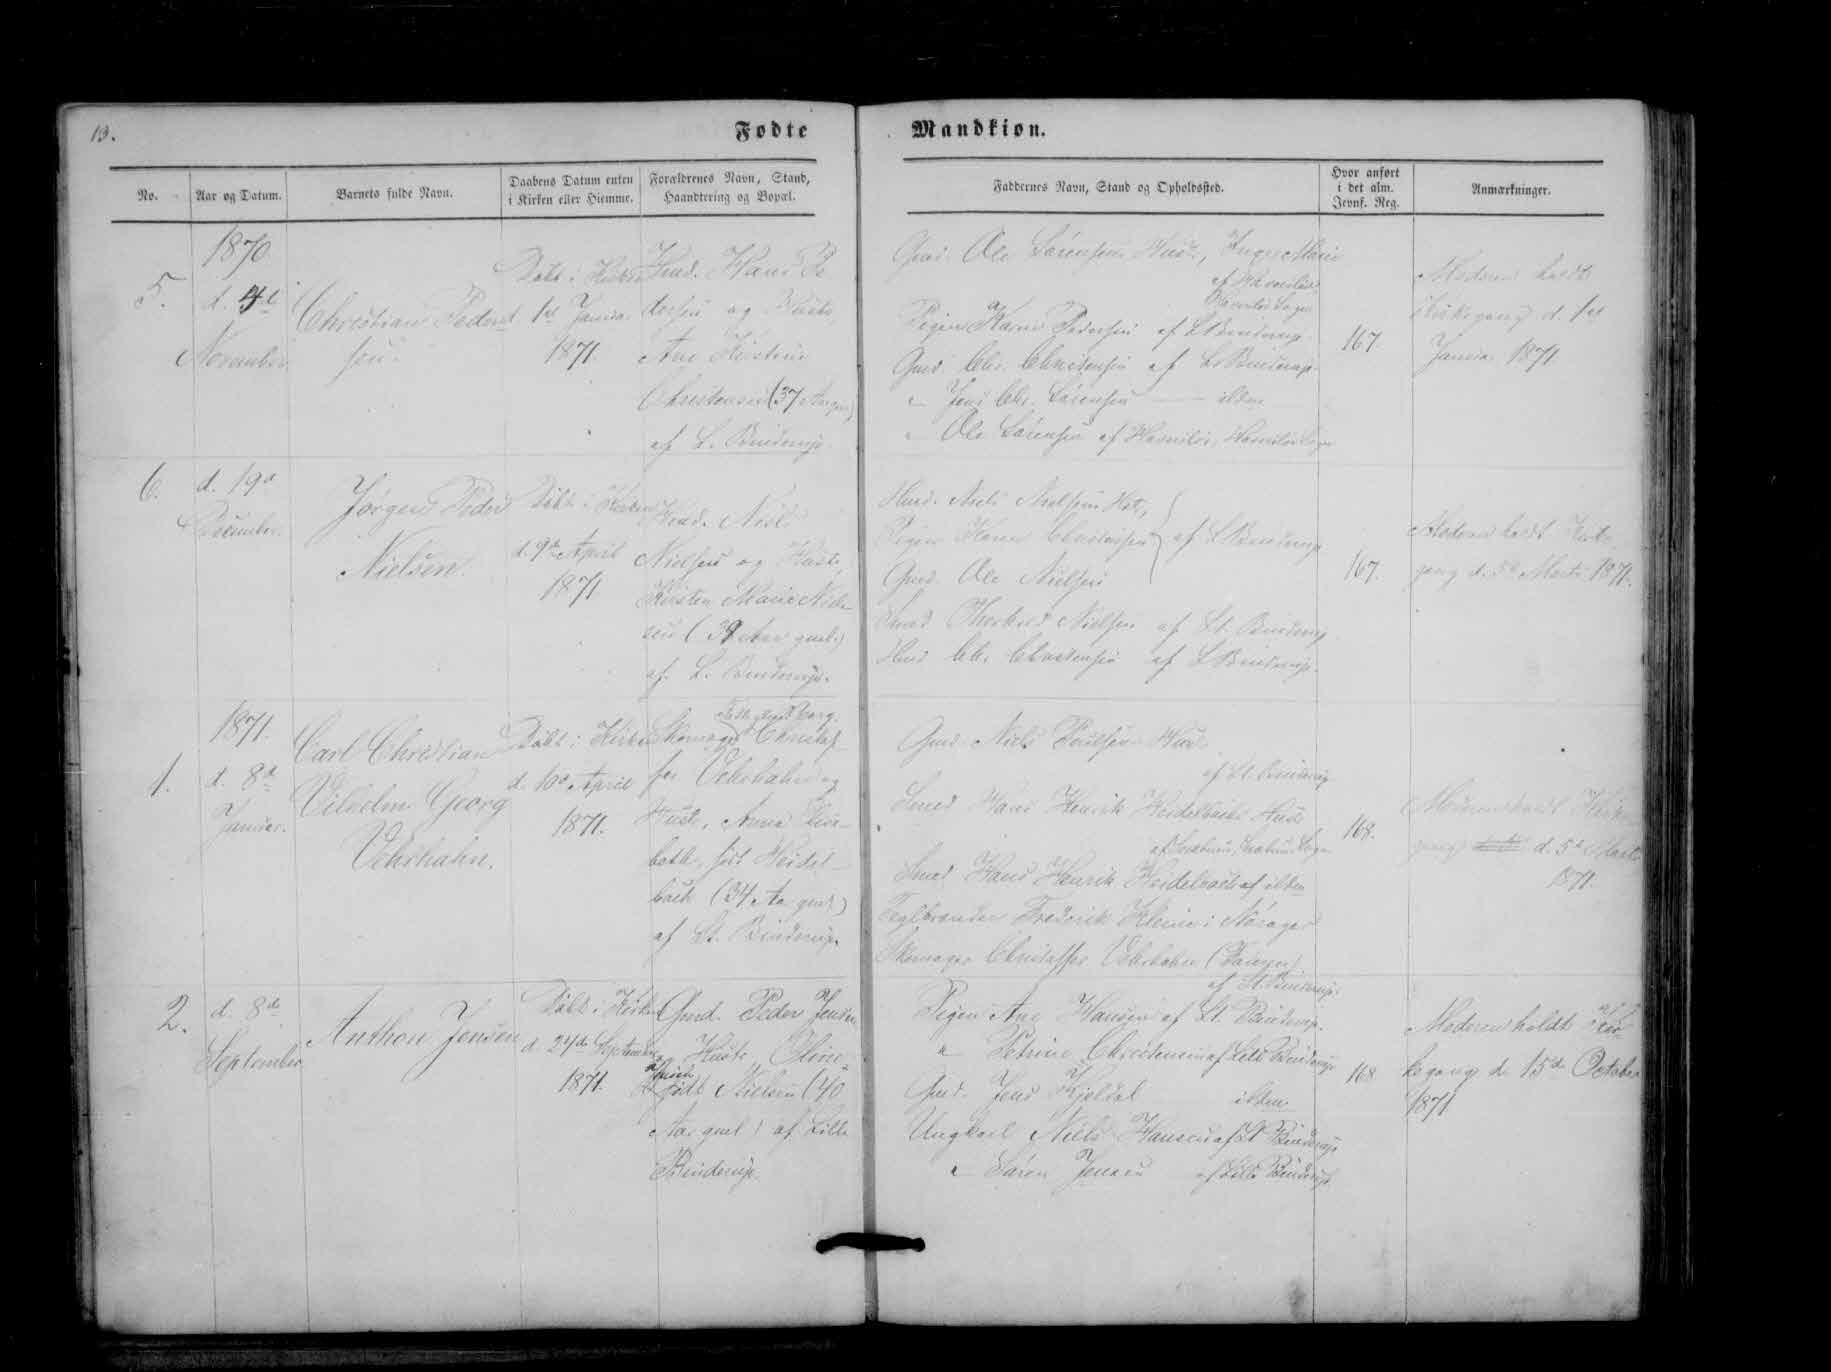 13.
Fødte Mandkiøn.
No.
Aar og Datum.
Barnets fulde Navn.
Daabens Datum enten
i Kirken eller Hiemme.
Forældrenes Navn, Stand,
Haandtering og Bopæl.
Faddernes Navn, Stand og Opholdssted.
Hvor anført
i det alm.
Jevnf. Reg.
Anmærkninger.
5.
1870
d. 4de
November
Christian Peder
sen.
Døbt i Kirken
d. 1st Januar
1871
Hmd. Hans Pe
dersen og Hustr.
Ane Kirstine
Christensen (37 Aar gml)
af L. Binderup.
Gmd. Ole Sørensens Hustr., Inger Marie
af Haverslev
Haverslev Sogn
Pigen Karen Pedersen af L Binderup
Gmd Chr. Christensen af L. Binderup.
" Jens Chr. Sørensen ibdm
" Ole Sørensen af Haverslev, Haverslev Sogn
167.
Moderen holdt
Kirkegang d. 1st
Januar 1871
6.
d. 19d
December.
Jørgen Peder
Nielsen.
Døbt i Kirken
d. 9de April
1871
Hmd. Niels
Nielsen og Hustr.
Kirsten Marie Niel
sen (39 Aar gml.)
af L. Binderup.
Hmd. Niels Nielsens Hst.,
Pigen Karen Christensen af L Binderup
Gmd. Ole Nielsen
Nielsen af St. Binderup
Hmd Chr. Christensen af L Binderup.
167.
Moderen holdt Kirke
gang d. 5d Marts 1871.
1871.
1.
d. 8d
Januar.
Carl Christian
Vilhelm Georg
Vehrhahn.
Døbt i Kirken
d. 10d April
1871.
Georg
Skomager Christof
fer Vehrhahn og
Hustr. Anna Elisa
beth, født Heidel
bach (34 Aar gml)
af St. Binderup.
Gmd Niels Poulsens Hust
af St. Binderup
Smed Hans Henrik Heidelbachs Hust
Sogn
Smed Hans Henrik Heidelbach af ibdm
Teglbrænder Frederik Kleine i Nørager
Skomager Christoffer Vehrhahn (Faderen)
af St. Binderup.
168.
Moderen holdt Kirke
gang d. 5d Marts
1871.
2.
d. 8de
September
Anthon Jensen
Døbt i Kirken
d. 24de September
1871.
Gmd. Peder Jensen
og Hustr. Oline
født Nielsen (40
Aar gml) af Lille
Binderup.
Pigen Ane Hansen af St. Binderup.
" Petrine Christensen af Lille Binderup
Gmd. Jens Kjeldal ibdm
Ungkarl Niels Hansen af St Binderup
" Søren Jensen af Lille Binderup
168
Moderen holdt Kir
kegang d. 15de October
1871